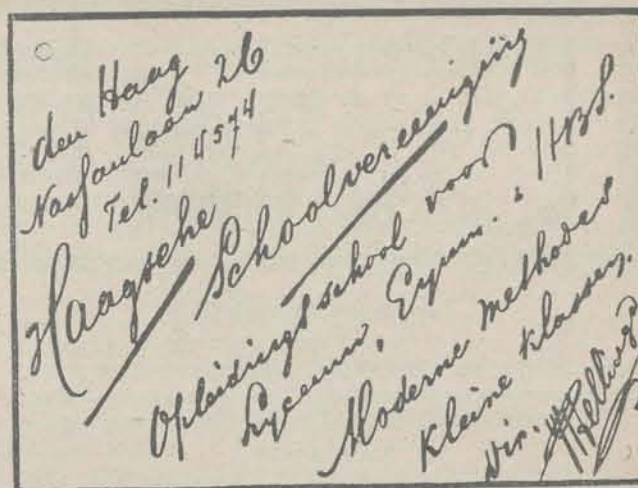 den Haag
Nassaulaan 26
Tel. 114574
Haagsche Schoolvereeniging
Opleidingsschool voor
Lyceum, Gymn. & HBS.
Moderne methodes
kleine klassen.
Dir.